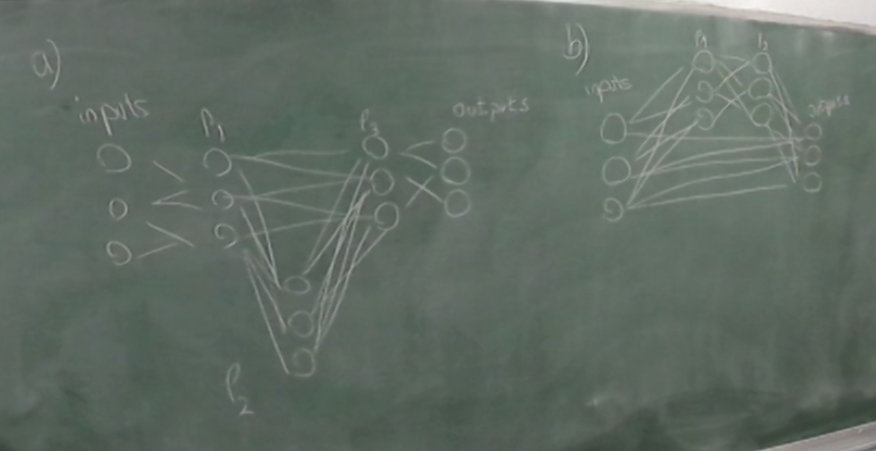 a)
inputs
P1
P2
P3
outputs
b)
inputs
P1
P2
outputs